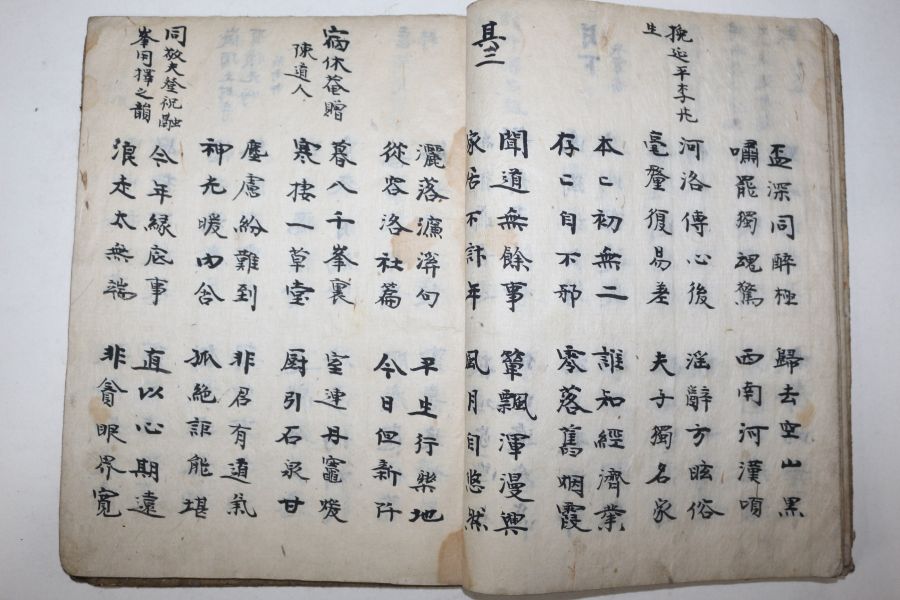 盃深同醉極 歸去空山黑
嘯罷獨魂驚 西南河漢傾
挽延平李先
生
河洛傳心後 淫辭方眩俗
毫釐復易差 夫子獨名家
本々初無二 誰知經濟業
存々自不邪 零落舊烟霞
其二
聞道無餘事 簞瓢渾漫興
家居不計年 風月自悠然
灑落濂溪句 平生行樂地
從容洛社篇 今日但新阡
病休菴贈
陳道人
暮入千峯裏 室連丹竈煖
寒棲一草堂 厨引石泉甘
塵慮紛難到 非君有道氣
神光暖內含 孤絶詎能堪
同敬夫登祝融
峯用擇之韻
今年緣底事 直以心期遠
浪走太無端 非貪眼界寬